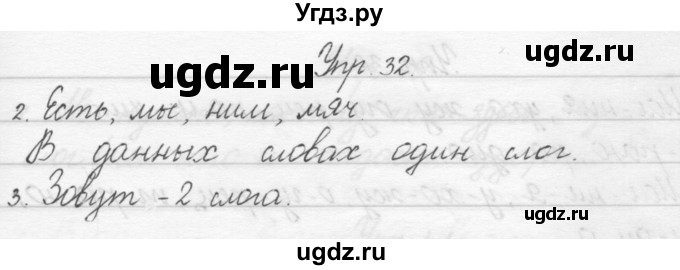 Угдз.ру
Упр. 32.
2. Есть, мы, ним, мяч.
В данных словах один слог.
3. Зовут - 2 слога.
ugdz.ru
ugdz.ru
ugdz.ru
ugdz.ru
ugdz.ru
ugdz.ru